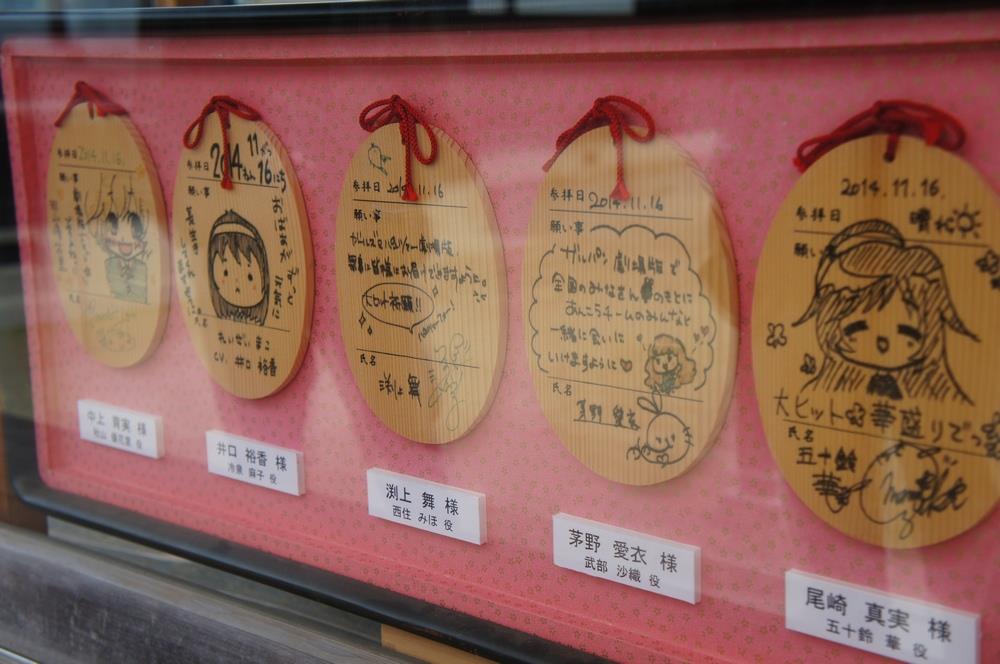 参拝日 2014.11.16.
願い事
氏名
中上 育実 様
秋山 優花里 役
参拝日 2014年11月16にち
願い事
氏名
れいぜい まこ
CV. 井口 裕香
井口 裕香 様
冷泉 麻子 役
参拝日 2014.11.16
願い事
ガールズ&パンツァー劇場版、
無事に皆様にお届けできますように。
ヒット祈願!!
氏名
渕上 舞
渕上 舞 様
西住 みほ 役
参拝日 2014.11.16
願い事
ガルパン 劇場版で
全国のみなさんのもとに
あんこうチームのみんなと
一緒に会いに
いけますように♡
氏名
茅野 愛衣
茅野 愛衣 様
武部 沙織 役
2014.11.16.
参拝日
願い
大ヒット華盛りでっ
氏名
五十鈴
華
尾崎 真実 様
五十鈴 華 役